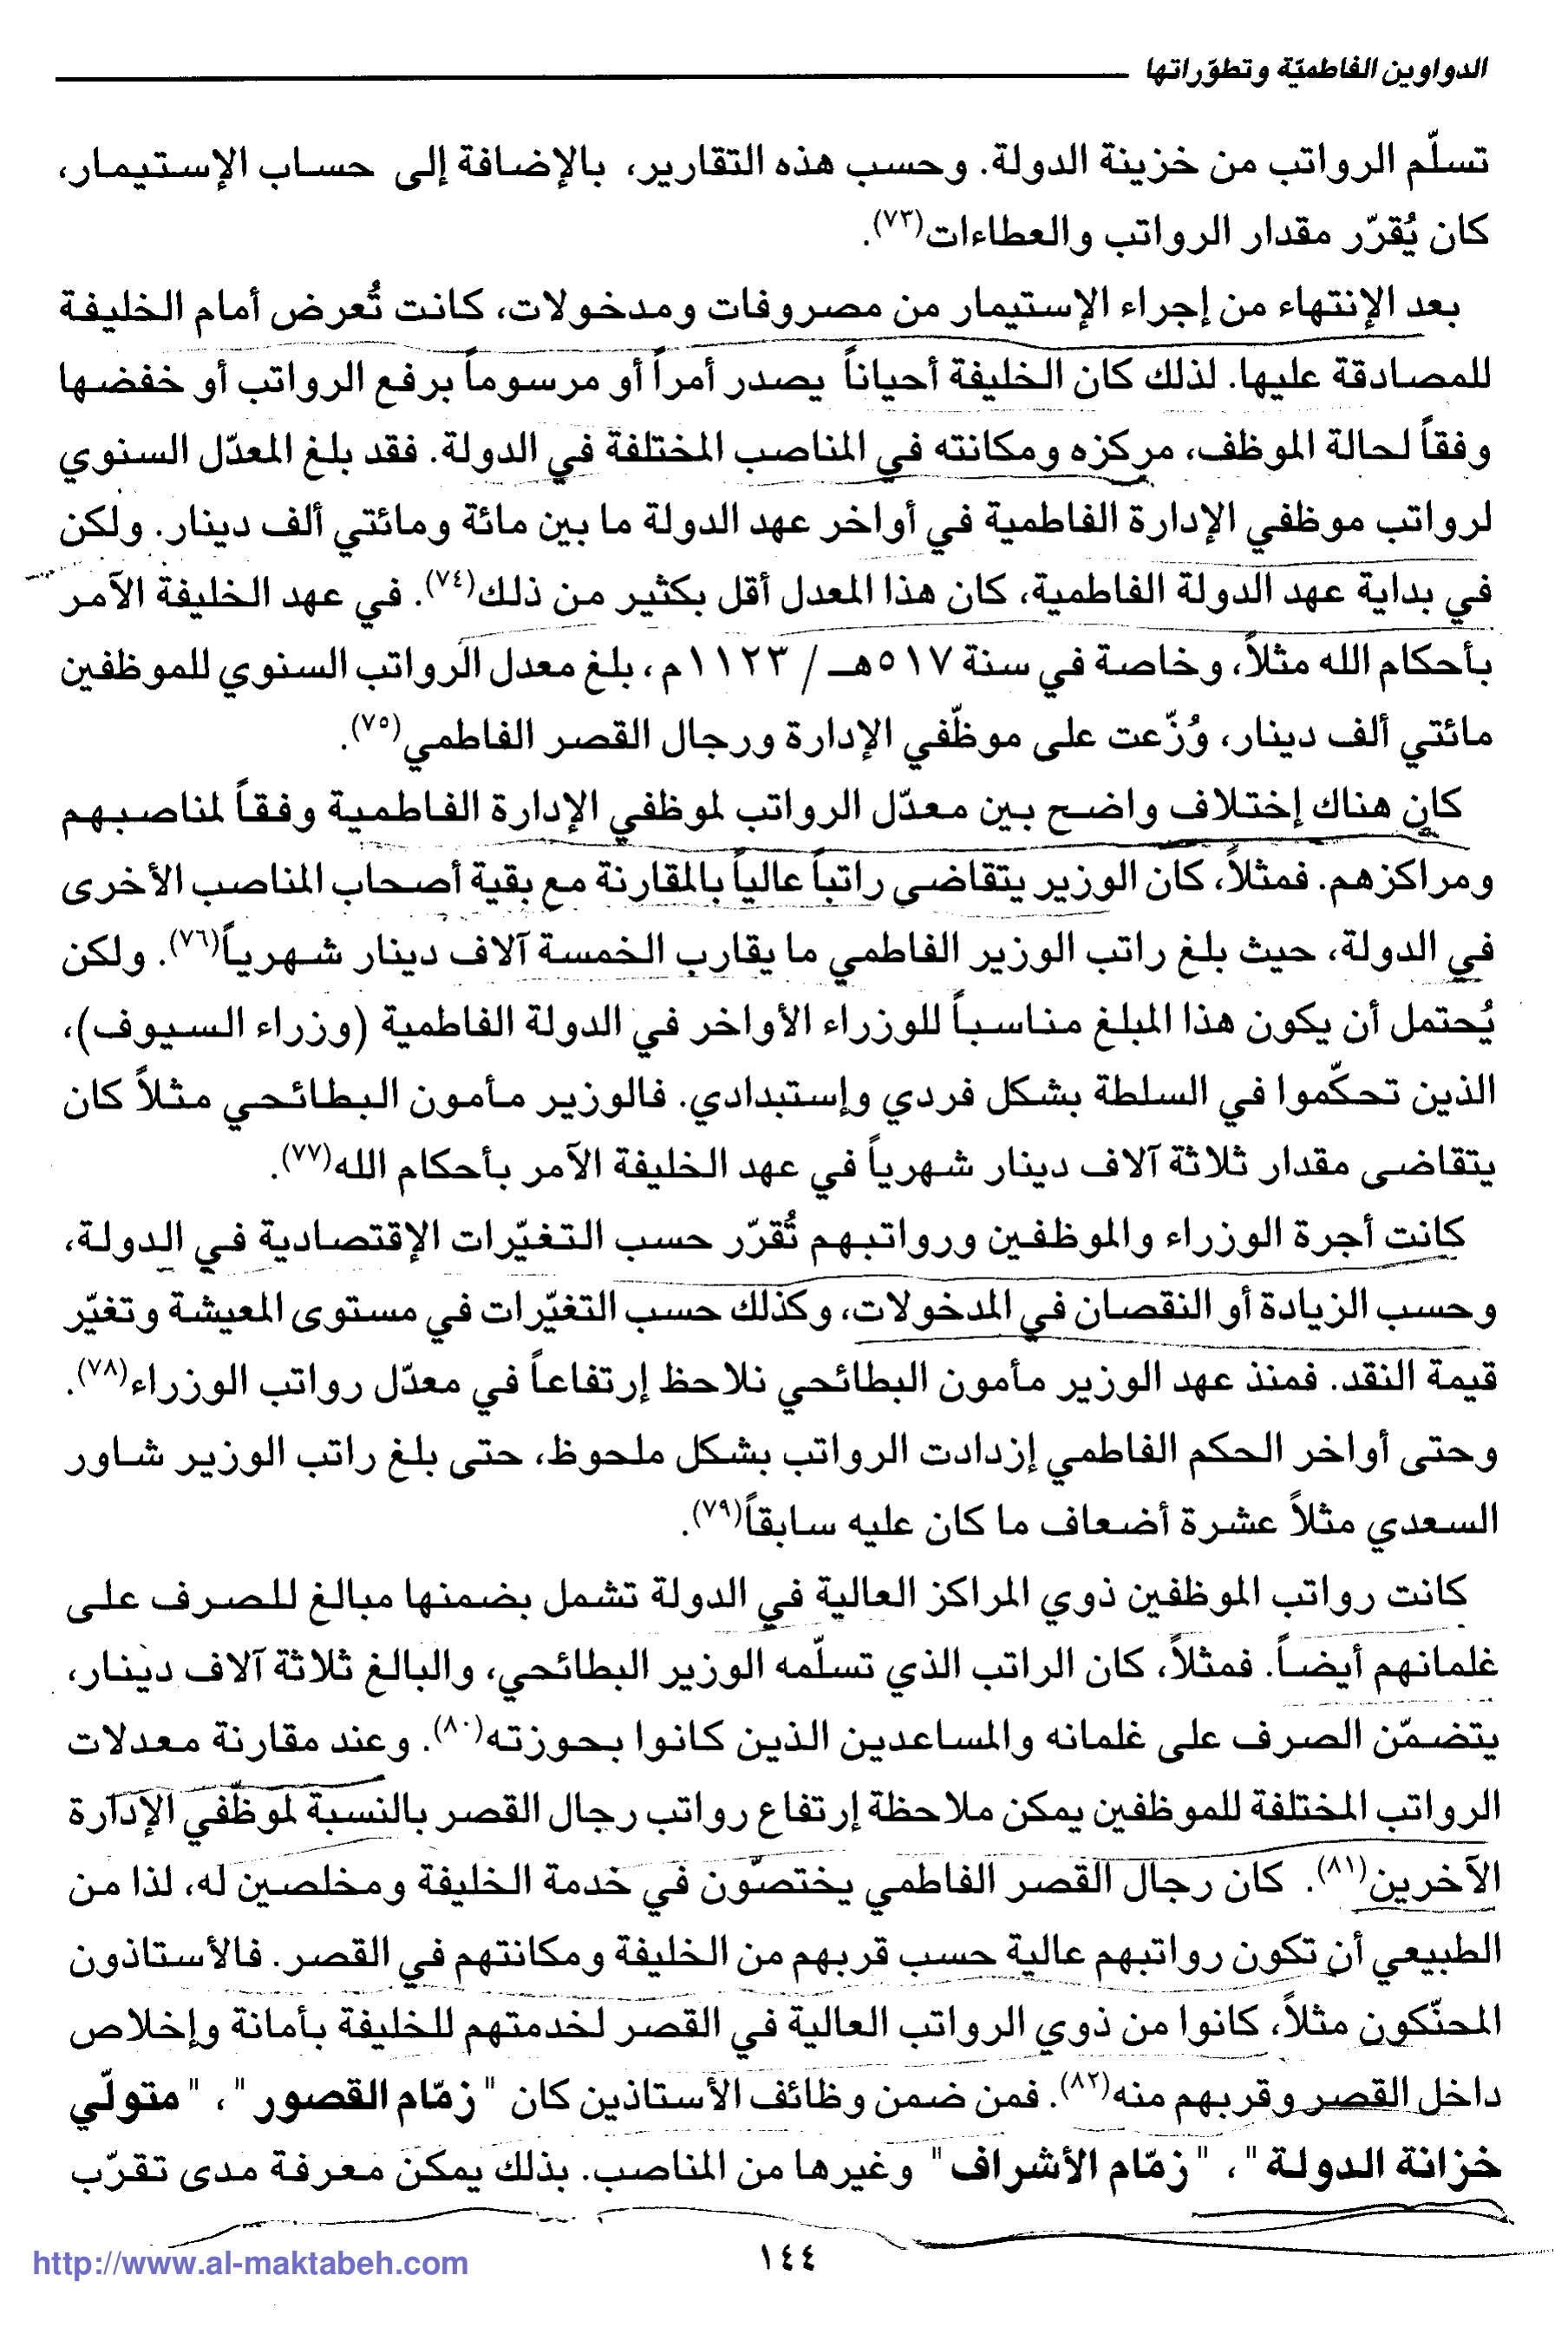 الدواوين الفاطميّة وتطوّراتها
تسلّم الرواتب من خزينة الدولة. وحسب هذه التقارير، بالإضافة إلى حساب الإستيمار،
كان يُقرّر مقدار الرواتب والعطاءات(٧٣).
بعد الإنتهاء من إجراء الإستيمار من مصروفات ومدخولات، كانت تُعرض أمام الخليفة
للمصادقة عليها. لذلك كان الخليفة أحياناً يصدر أمراً أو مرسوماً برفع الرواتب أو خفضها
وفقاً لحالة الموظف، مركزه ومكانته في المناصب المختلفة في الدولة. فقد بلغ المعدّل السنوي
لرواتب موظفي الإدارة الفاطمية في أواخر عهد الدولة ما بين مائة ومائتي ألف دينار. ولكن
في بداية عهد الدولة الفاطمية، كان هذا المعدل أقل بكثير من ذلك(٧٤). في عهد الخليفة الآمر
بأحكام الله مثلاً، وخاصة في سنة ٥١٧هـ / ١١٢٣م، بلغ معدل الرواتب السنوي للموظفين
مائتي ألف دينار، وُزّعت على موظّفي الإدارة ورجال القصر الفاطمي(٧٥).
كان هناك إختلاف واضح بين معدّل الرواتب لموظفي الإدارة الفاطمية وفقاً لمناصبهم
ومراكزهم. فمثلاً، كان الوزير يتقاضى راتباً عالياً بالمقارنة مع بقية أصحاب المناصب الأخرى
في الدولة، حيث بلغ راتب الوزير الفاطمي ما يقارب الخمسة آلاف دينار شهرياً(٧٦). ولكن
يُحتمل أن يكون هذا المبلغ مناسباً للوزراء الأواخر في الدولة الفاطمية (وزراء السيوف)،
الذين تحكّموا في السلطة بشكل فردي وإستبدادي. فالوزير مأمون البطائحي مثلاً كان
يتقاضى مقدار ثلاثة آلاف دينار شهرياً في عهد الخليفة الآمر بأحكام الله(٧٧).
كانت أجرة الوزراء والموظفين ورواتبهم تُقرّر حسب التغيّرات الإقتصادية في الدولة،
وحسب الزيادة أو النقصان في المدخولات، وكذلك حسب التغيّرات في مستوى المعيشة وتغيّر
قيمة النقد. فمنذ عهد الوزير مأمون البطائحي نلاحظ إرتفاعاً في معدّل رواتب الوزراء(٧٨).
وحتى أواخر الحكم الفاطمي إزدادت الرواتب بشكل ملحوظ، حتى بلغ راتب الوزير شاور
السعدي مثلاً عشرة أضعاف ما كان عليه سابقاً(٧٩).
كانت رواتب الموظفين ذوي المراكز العالية في الدولة تشمل بضمنها مبالغ للصرف على
غلمانهم أيضاً. فمثلاً، كان الراتب الذي تسلّمه الوزير البطائحي، والبالغ ثلاثة آلاف دينار،
يتضمّن الصرف على غلمانه والمساعدين الذين كانوا بحوزته(٨٠). وعند مقارنة معدلات
الرواتب المختلفة للموظفين يمكن ملاحظة إرتفاع رواتب رجال القصر بالنسبة لموظّفي الإدارة
الآخرين(٨١). كان رجال القصر الفاطمي يختصّون في خدمة الخليفة ومخلصين له، لذا من
الطبيعي أن تكون رواتبهم عالية حسب قربهم من الخليفة ومكانتهم في القصر. فالأستاذون
المحنّكون مثلاً، كانوا من ذوي الرواتب العالية في القصر لخدمتهم للخليفة بأمانة وإخلاص
داخل القصر وقربهم منه(٨٢). فمن ضمن وظائف الأستاذين كان "زمّام القصور"، "متولّي
خزانة الدولة"، "زمّام الأشراف" وغيرها من المناصب. بذلك يمكن معرفة مدى تقرّب
١٤٤
http://www.al-maktabeh.com